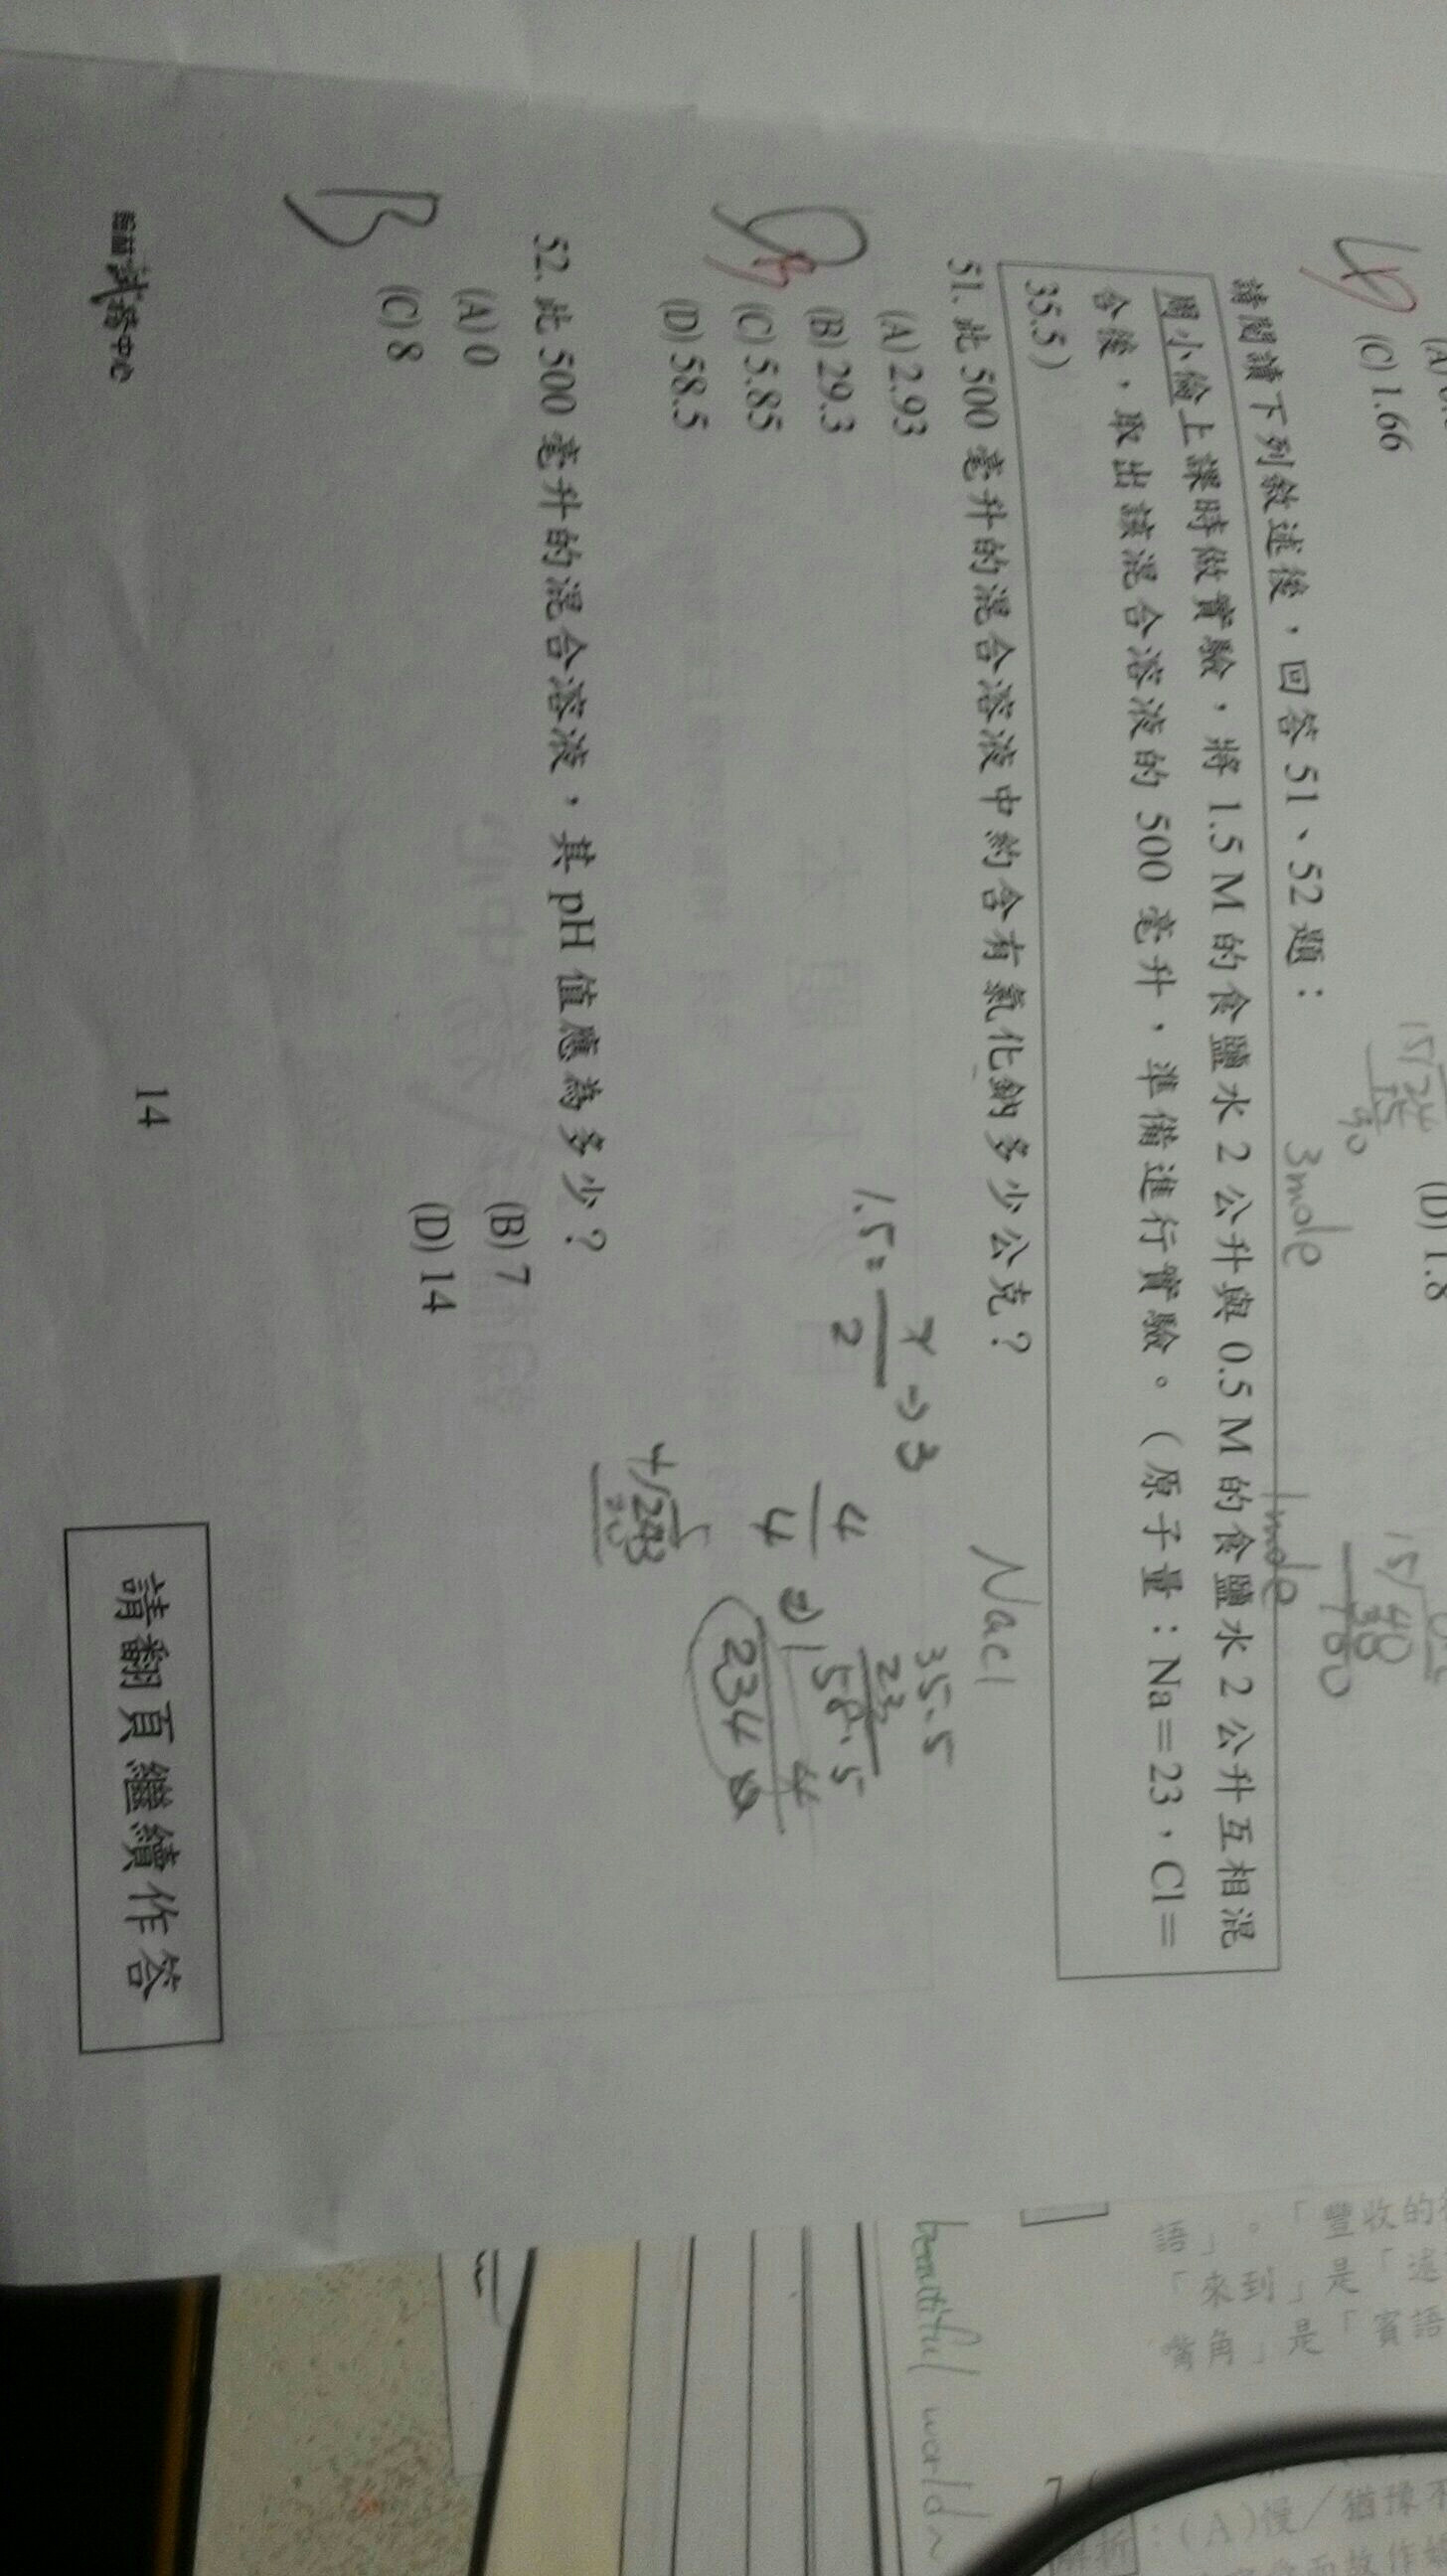 (C) 1.66
(D) 1.8
請閱讀下列敘述後，回答 51、52 題：
3mole
1mole
周小儉上課時做實驗，將 1.5 M 的食鹽水 2 公升與 0.5 M 的食鹽水 2 公升互相混
合後，取出該混合溶液的 500 毫升，準備進行實驗。（原子量：Na＝23，Cl＝
35.5）
51. 此 500 毫升的混合溶液中約含有氯化鈉多少公克？
NaCl
(A) 2.93
(B) 29.3
(C) 5.85
(D) 58.5
1.5 =
2
→ 3
4
4
35.5
23
58.5
4
234
52. 此 500 毫升的混合溶液，其 pH 值應為多少？
B
(A) 0
(B) 7
(C) 8
(D) 14
14
請翻頁繼續作答
語」。「豐收的
「來到」是「
嘴角」是「賓語
beautiful world~
：(A)慢／猶豫不